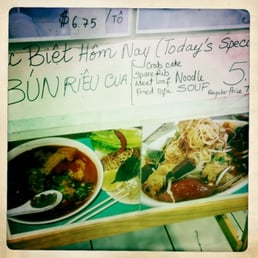 $6.75 /TÔ
c Biêt Hôm Nay (Today's Spec
BÚN RIÊU CUA
Crab cake
Spare Rib
Meat loaf
Fried Tofu
Noodle
SOUP
5.
Regular Price